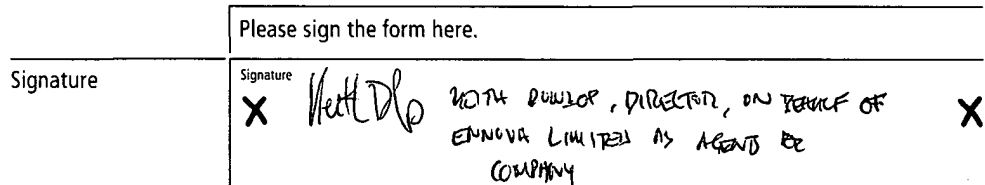 Please sign the form here.
Signature
Signature
X KEITH DUNLOP, DIRECTOR, ON BEHALF OF X
ENNOVA LIMITED AS AGENT FOR
COMPANY